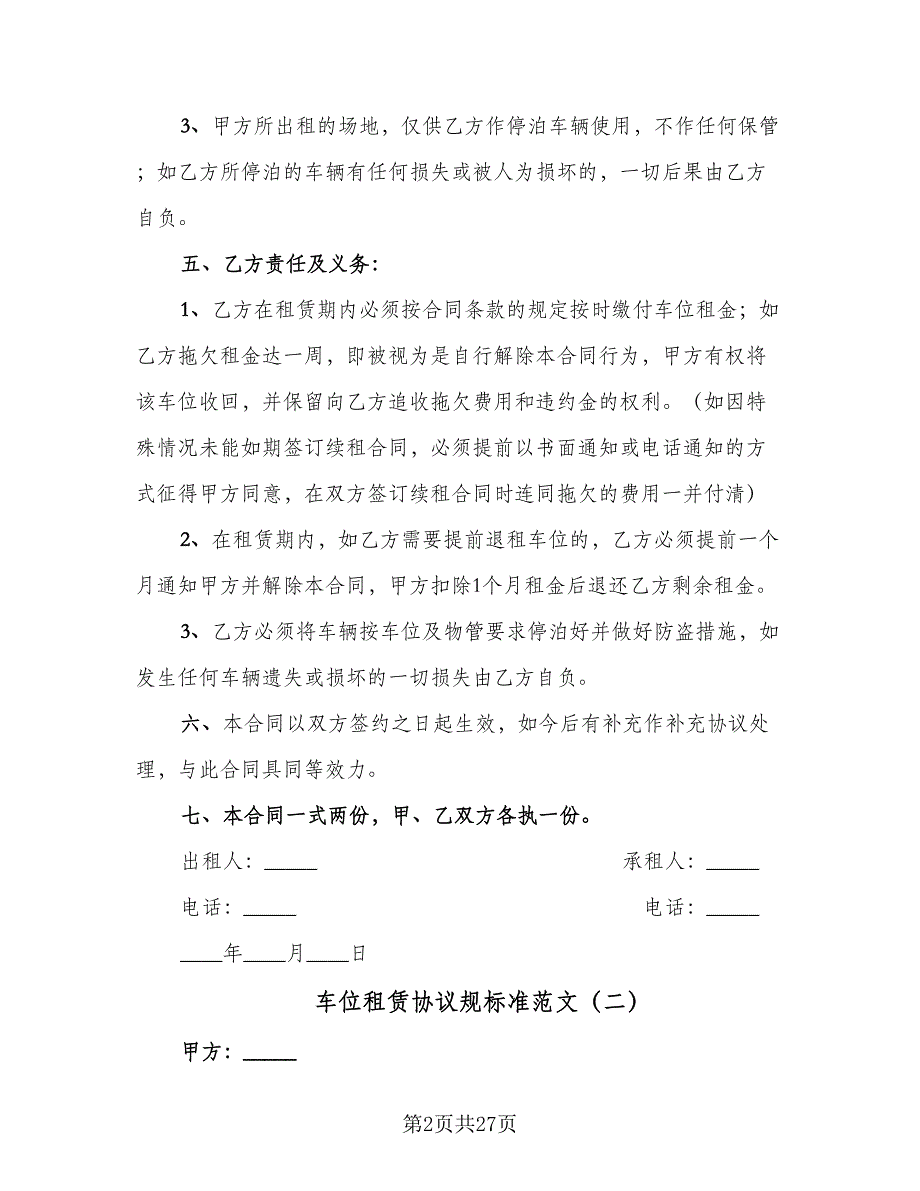 3、甲方所出租的场地，仅供乙方作停泊车辆使用，不作任何保管
；如乙方所停泊的车辆有任何损失或被人为损坏的，一切后果由乙方
自负。
五、乙方责任及义务：
1、乙方在租赁期内必须按合同条款的规定按时缴付车位租金；如
乙方拖欠租金达一周，即被视为是自行解除本合同行为，甲方有权将
该车位收回，并保留向乙方追收拖欠费用和违约金的权利。（如因特
殊情况未能如期签订续租合同，必须提前以书面通知或电话通知的方
式征得甲方同意，在双方签订续租合同时连同拖欠的费用一并付清）
2、在租赁期内，如乙方需要提前退租车位的，乙方必须提前一个
月通知甲方并解除本合同，甲方扣除1个月租金后退还乙方剩余租金。
3、乙方必须将车辆按车位及物管要求停泊好并做好防盗措施，如
发生任何车辆遗失或损坏的一切损失由乙方自负。
六、本合同以双方签约之日起生效，如今后有补充作补充协议处
理，与此合同具同等效力。
七、本合同一式两份，甲、乙双方各执一份。
出租人：_____ 承租人：_____
电话：_____ 电话：_____
____年____月____日
车位租赁协议规标准范文（二）
甲方：_____
第2页共27页